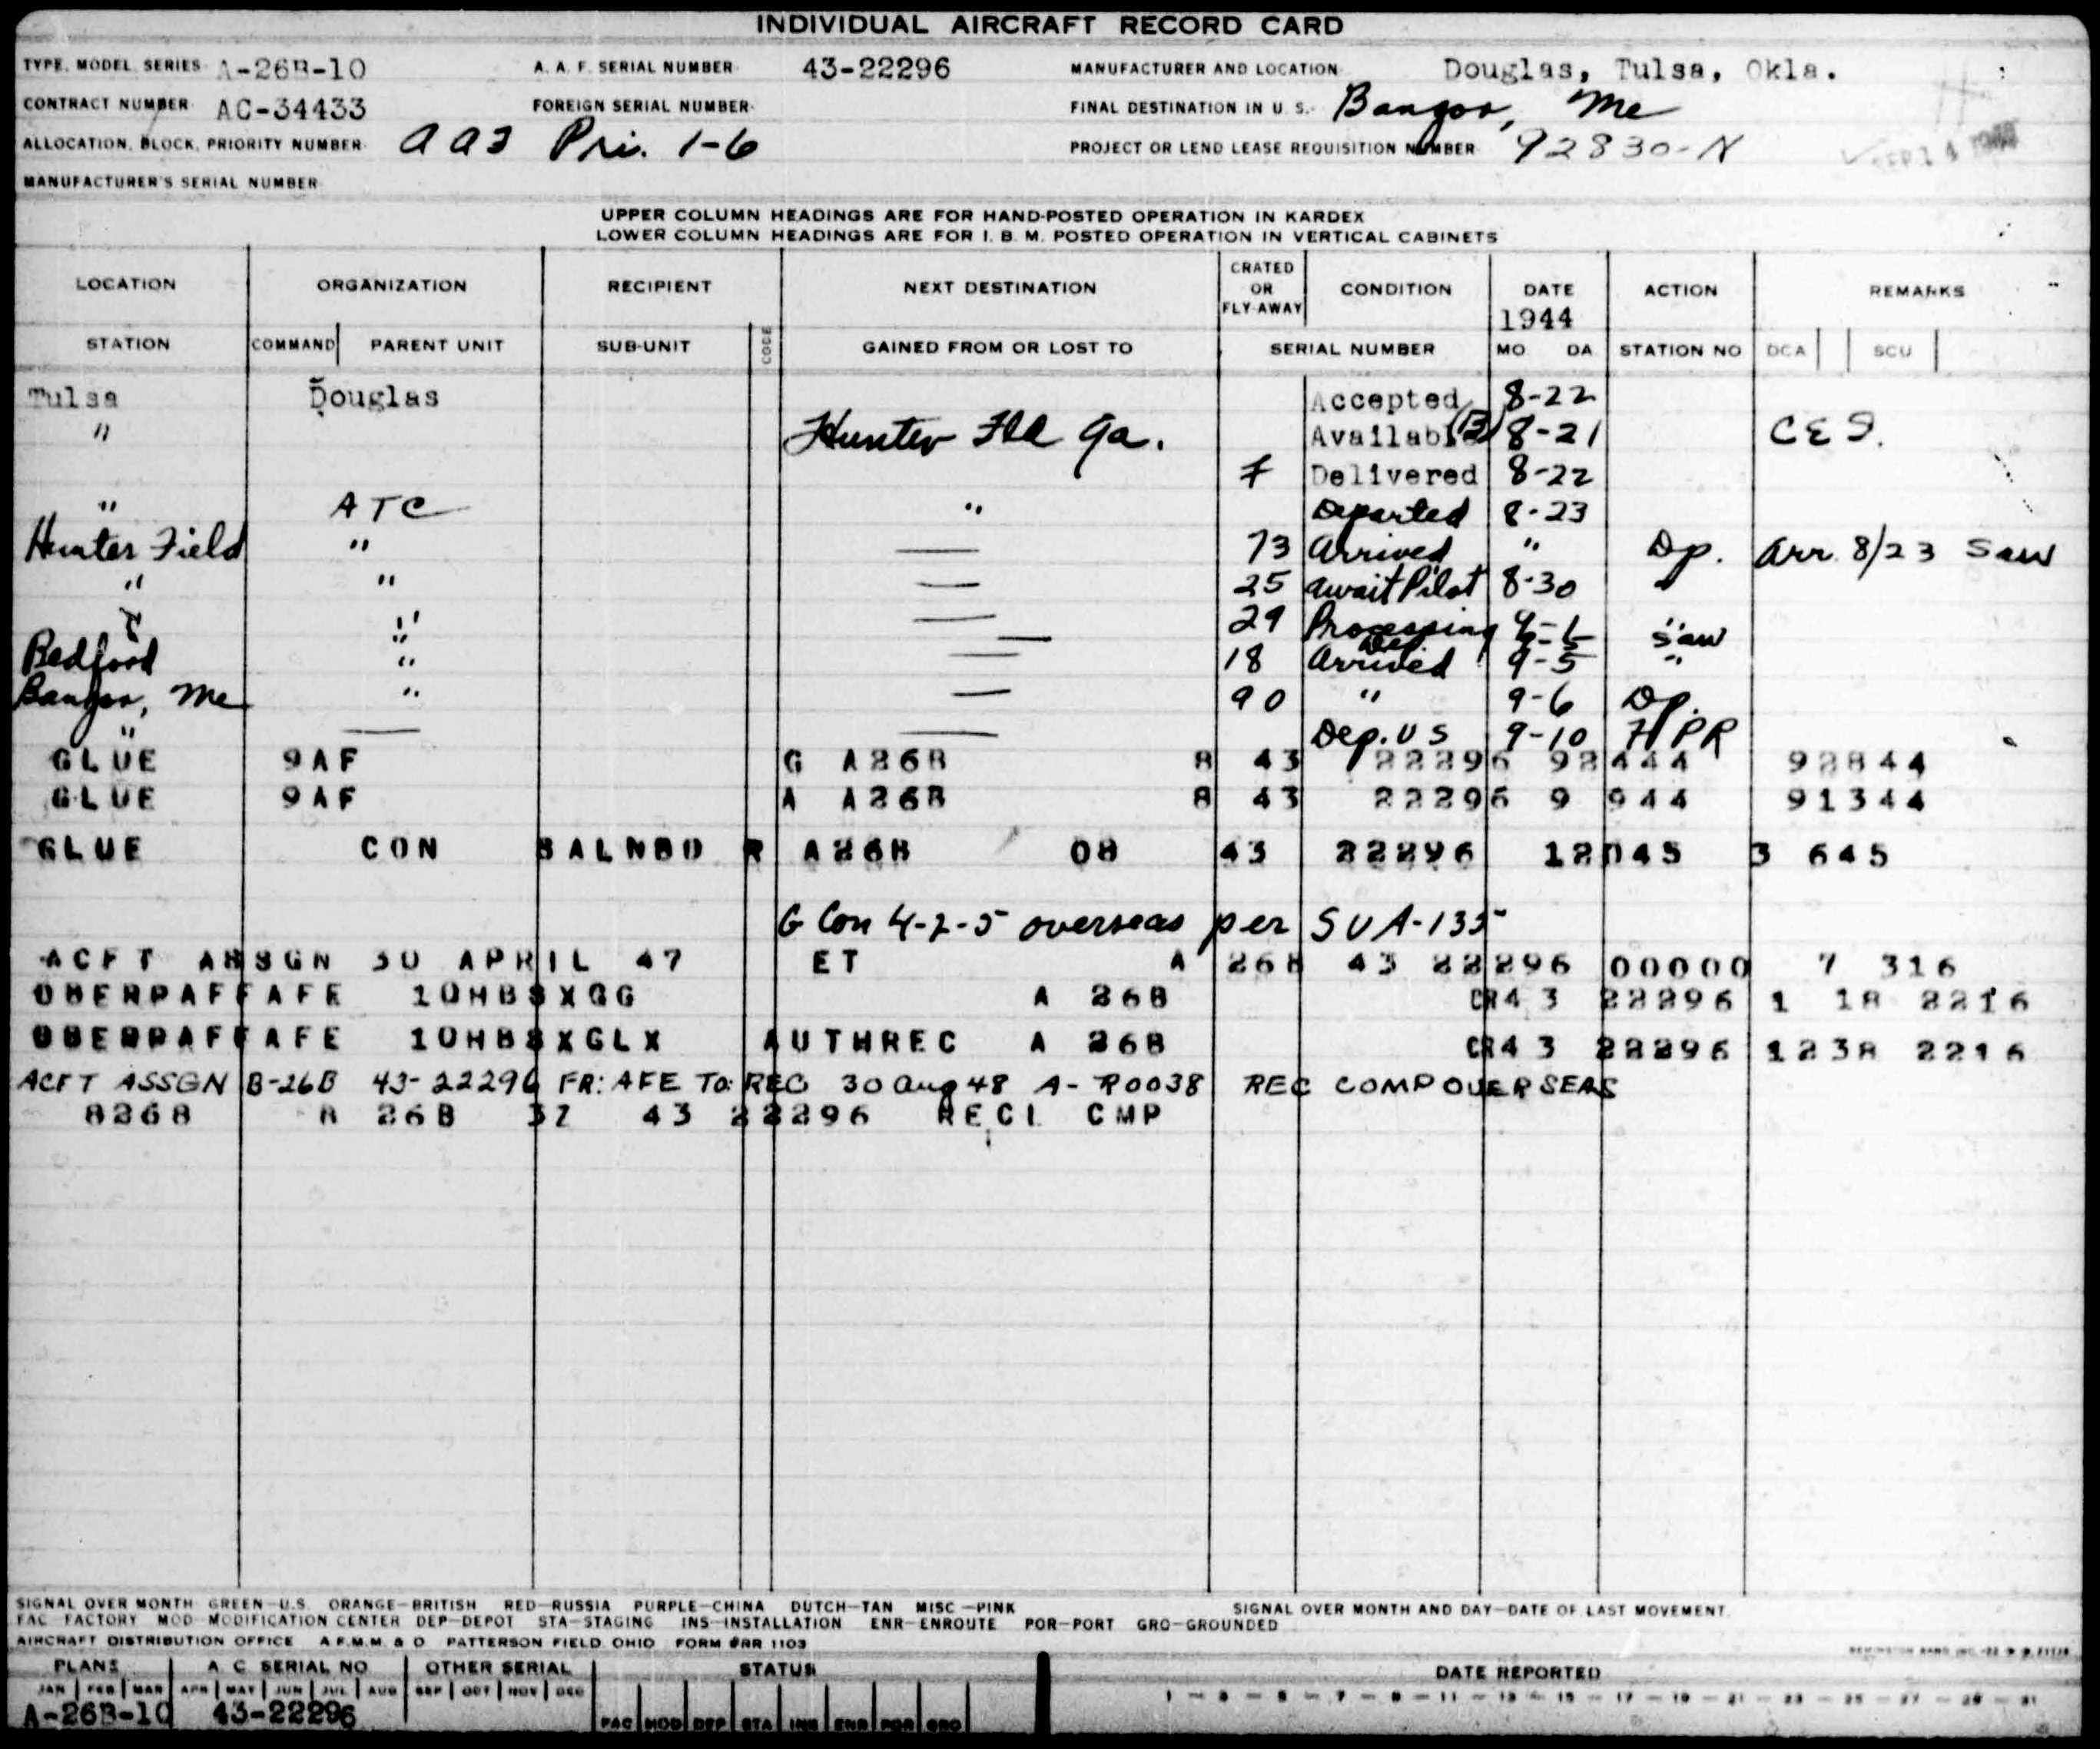 INDIVIDUAL AIRCRAFT RECORD CARD
TYPE, MODEL, SERIES A-26B-10 A. A. F. SERIAL NUMBER 43-22296 MANUFACTURER AND LOCATION Douglas, Tulsa, Okla.
CONTRACT NUMBER AC-34433 FOREIGN SERIAL NUMBER FINAL DESTINATION IN U. S. Bangor, Me
ALLOCATION, BLOCK, PRIORITY NUMBER Pri. 1-6 PROJECT OR LEND LEASE REQUISITION NUMBER 92830-N
MANUFACTURER'S SERIAL NUMBER
UPPER COLUMN HEADINGS ARE FOR HAND-POSTED OPERATION IN KARDEX
LOWER COLUMN HEADINGS ARE FOR I. B. M. POSTED OPERATION IN VERTICAL CABINETS
LOCATION ORGANIZATION RECIPIENT NEXT DESTINATION CRATED OR FLY-AWAY CONDITION DATE 1944 ACTION REMARKS
STATION COMMAND PARENT UNIT SUB-UNIT CODE GAINED FROM OR LOST TO SERIAL NUMBER MO DA STATION NO DCA SCU
Tulsa Douglas Accepted 8-22
" Hunter Fld Ga. Available 8-21
F Delivered 8-22
" ATC " Departed 8-23
Hunter Field " — 73 Arrived " Dp. Arr. 8/23 Saw
" " — 25 await Pilot 8-30 "
" — 29 Processing 9-1 "
" — Dep. Saw
Bedford " — 18 Arrived 9-5 "
Bangor, Me " — 90 " 9-6 Dp.
" — — Dep. US 9-10 PR
GLUE 9AF G A26B 8 43 22296 92444 92844
GLUE 9AF A A26B 8 43 22296 9 944 91344
GLUE CON SALNBD R A26B 08 43 22296 12045 3 645
G Con 4-2-5 overseas per SUA-135
ACFT ASSGN 30 APRIL 47 ET A 26B 43 22296 00000 7 316
OBERPAFFAFE 10HBSXGG A 26B CR43 22296 1 18 2216
OBERPAFFAFE 10HBSXGLX AUTHREC A 26B CR43 22296 1238 2216
ACFT ASSGN B-26B 43-22296 FR: AFE TO: REC 30 Aug 48 A-R0038 REC COMP OVERSEAS
8268 B 26B 3Z 43 22296 RECL CMP
SIGNAL OVER MONTH GREEN—U.S. ORANGE—BRITISH RED—RUSSIA PURPLE—CHINA DUTCH—TAN MISC—PINK SIGNAL OVER MONTH AND DAY—DATE OF LAST MOVEMENT.
FAC FACTORY MOD MODIFICATION CENTER DEP—DEPOT STA—STAGING INS—INSTALLATION ENR—ENROUTE POR—PORT GRO—GROUNDED
AIRCRAFT DISTRIBUTION OFFICE A.F.M.M. & D PATTERSON FIELD, OHIO FORM #RR 1103
PLANE A C SERIAL NO OTHER SERIAL STATUS DATE REPORTED
JAN FEB MAR APR MAY JUN JUL AUG SEP OCT NOV DEC 1 — 3 — 5 — 7 — 9 — 11 — 13 — 15 — 17 — 19 — 21 — 23 — 25 — 27 — 29 — 31
A-26B-10 43-22296 FAC MOD DEP STA INS ENR POR GRO